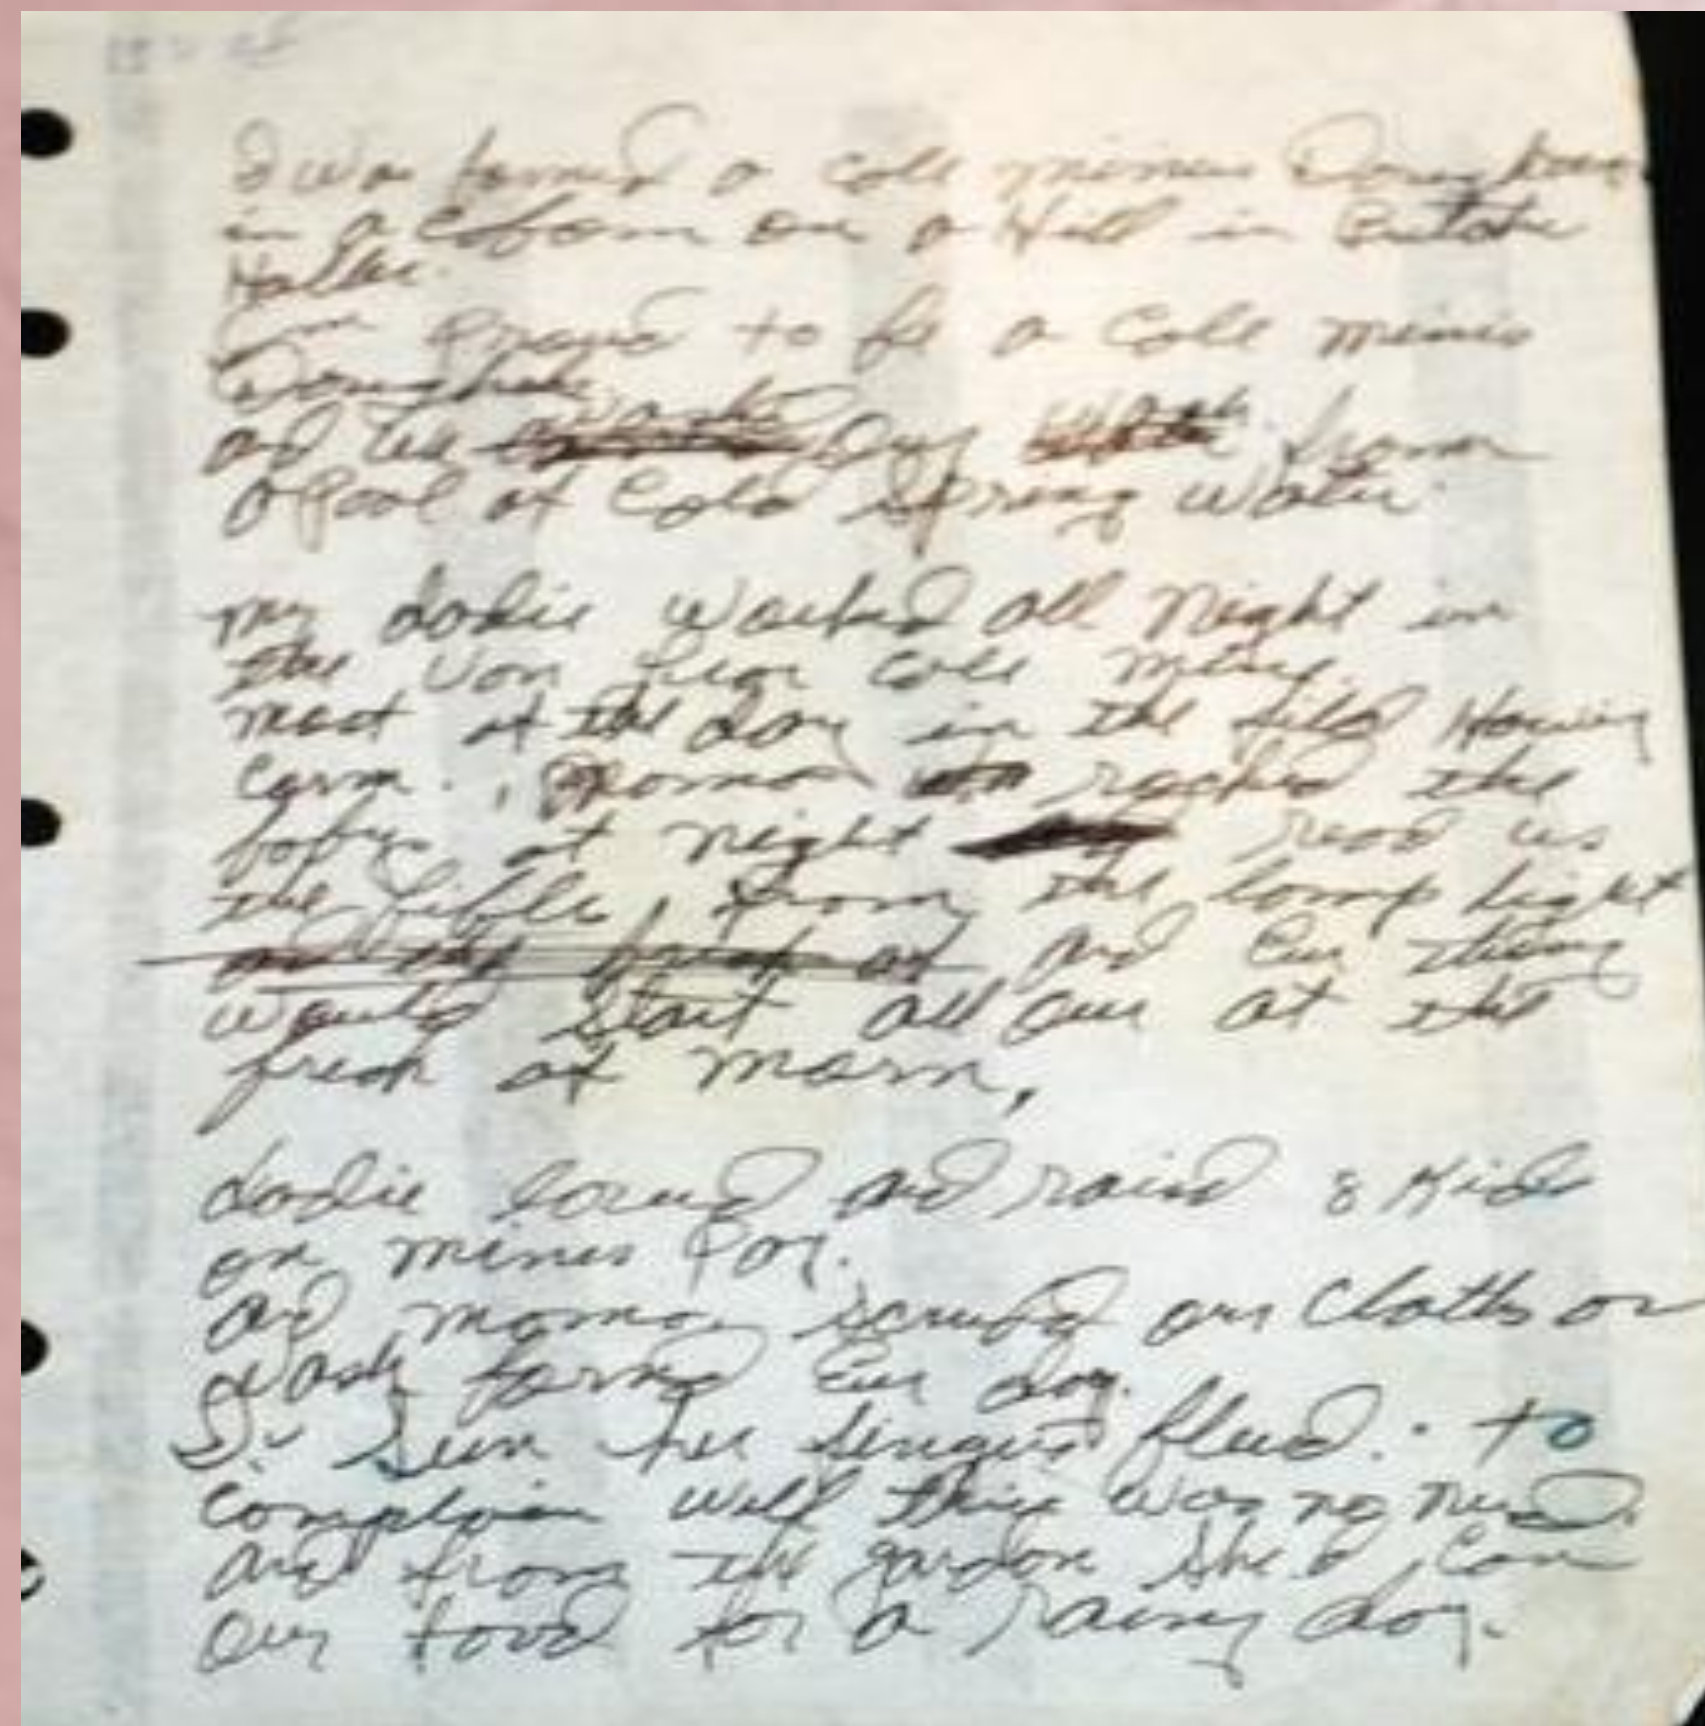 I was borned a cole miners Daughter
in a Cabom on a Hill in Butcher
Holler.
I'm Proud to be a Cole miners
Daughter
ad we our from
a Pool of Cold Spring water.
my dadie worked all Night in
the Van Lear cole mine
most of the day in the filed Howing
Corn. , Moma rocked the
babys at night read us
the bible, from the lomp light
ad the break of and Ever thing
would start all over at the
break of morn,
dadie loved ad raisd 8 Kids
on miners Pay.
ad moma scrubd our Cloths on
wash bord Ever day.
I'v seen her fingers bleed. to
complain well thire was no need.
and from the gardon she'd Can
our food for a rainy day.